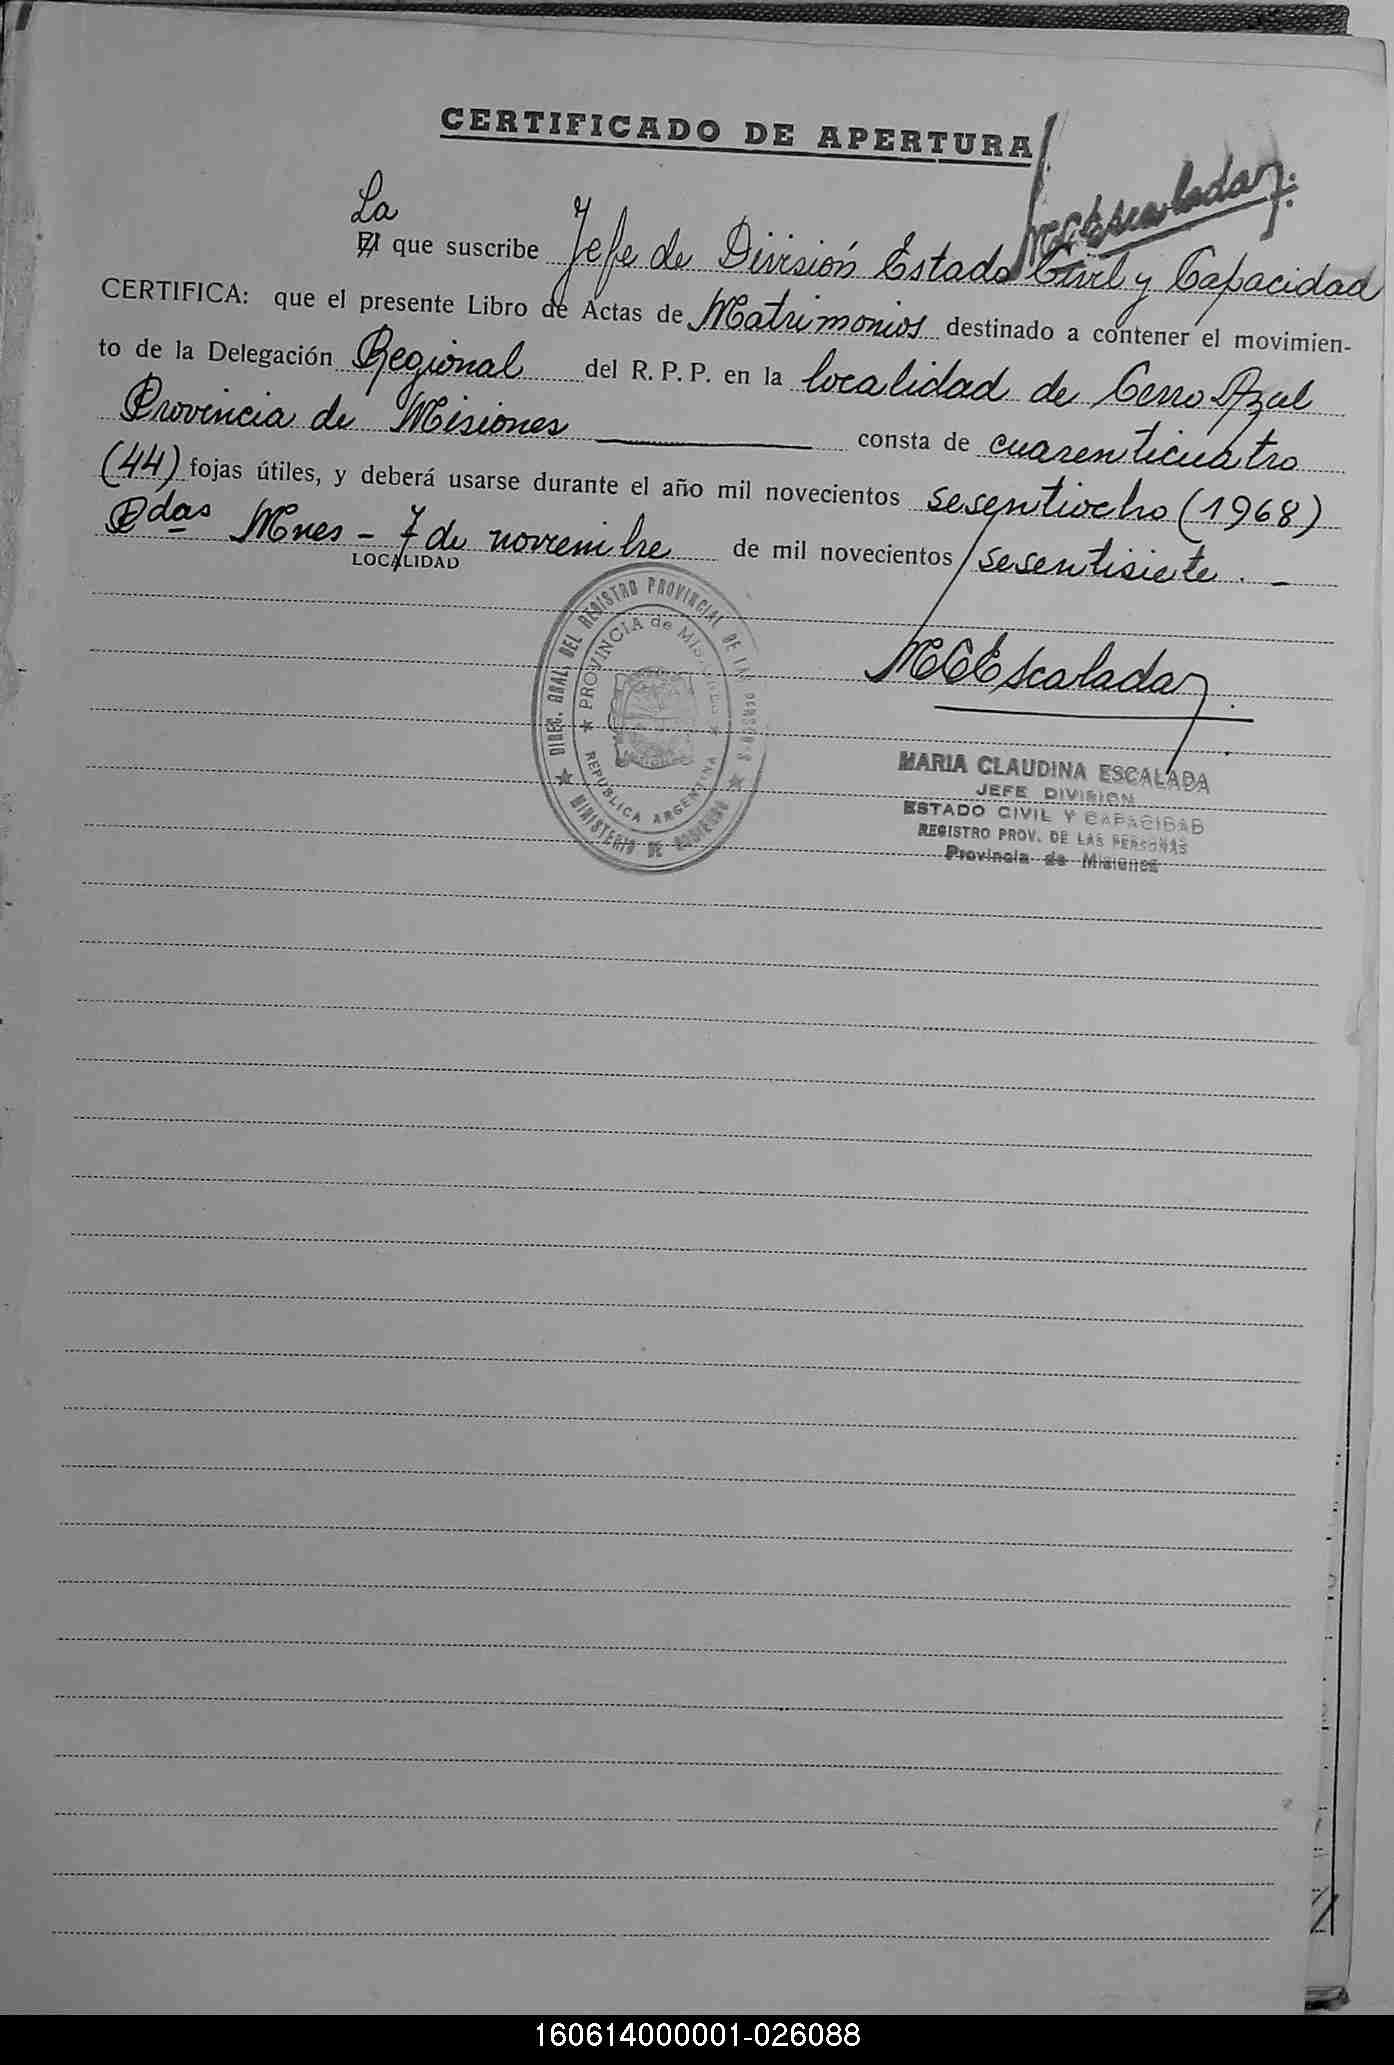 CERTIFICADO DE APERTURA
MCEscalada
La
El que suscribe Jefe de División Estado Civil y Capacidad
CERTIFICA: que el presente Libro de Actas de Matrimonios destinado a contener el movimien-
to de la Delegación Regional del R. P. P. en la localidad de Cerro Azul
Provincia de Misiones consta de cuarenticuatro
(44) fojas útiles, y deberá usarse durante el año mil novecientos sesentiocho (1968)
Pdas Mnes - 7 de noviembre de mil novecientos sesentisiete. -
LOCALIDAD
DIREC. GRAL. DEL REGISTRO PROVINCIAL DE LAS PERSONAS
PROVINCIA de MISIONES
REPUBLICA ARGENTINA
MINISTERIO DE GOBIERNO
MCEscalada
MARIA CLAUDINA ESCALADA
JEFE DIVISION
ESTADO CIVIL Y CAPACIDAD
REGISTRO PROV. DE LAS PERSONAS
Provincia de Misiones
160614000001-026088